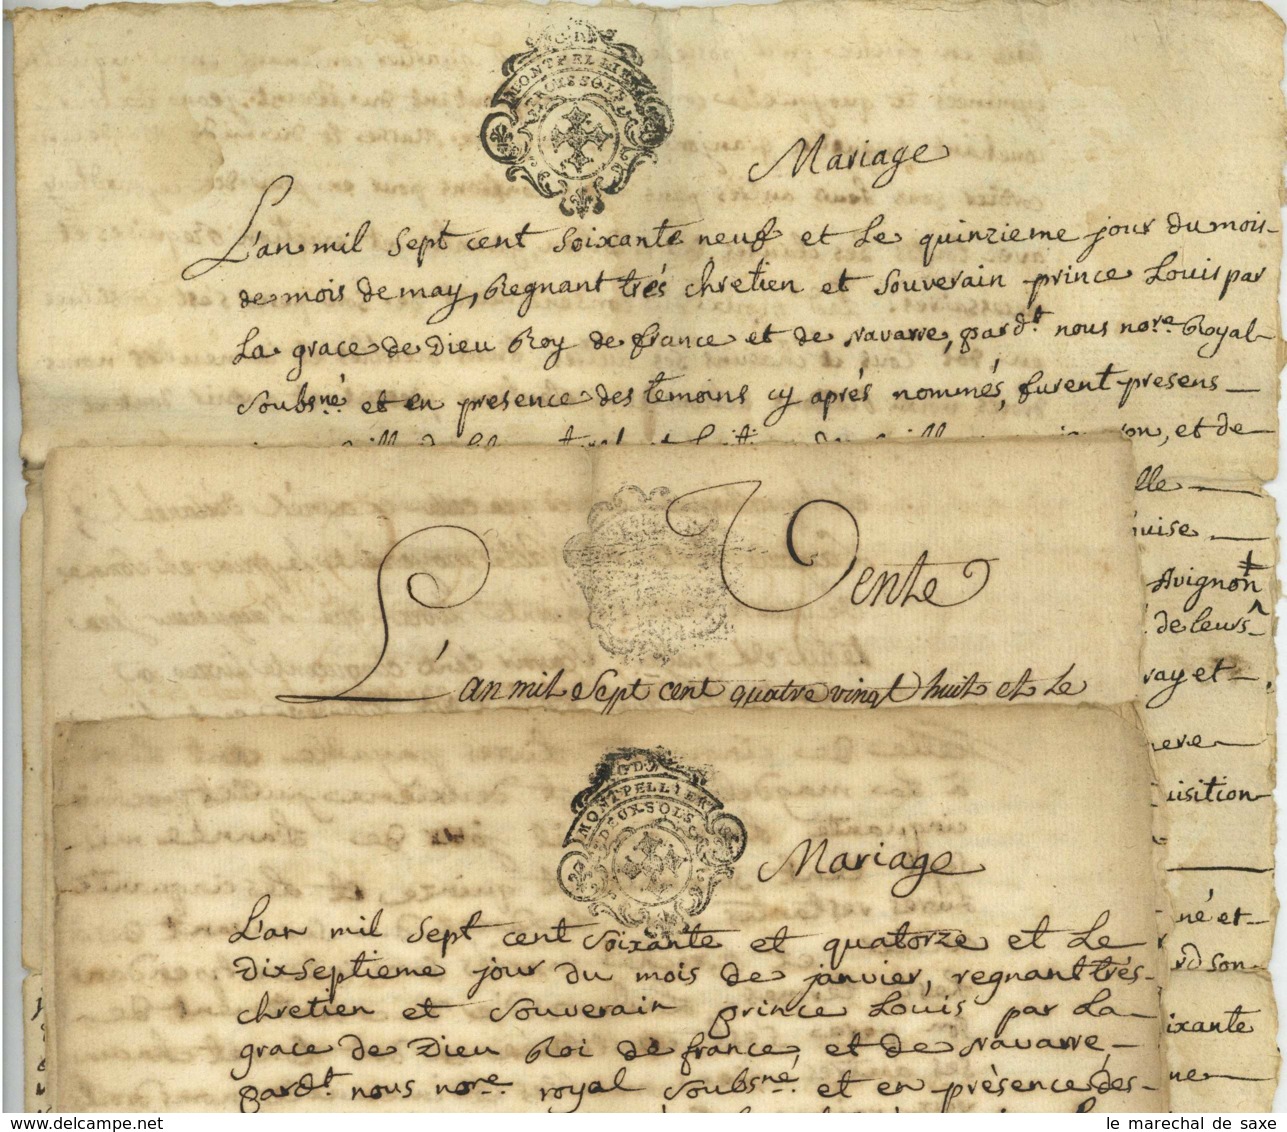 G. DE
MONTPELLIER
TROIS SOLS
Mariage
L'an mil sept cent soixante neuf et le quinzieme jour du mois
de mois de may, Regnant trés chretien et souverain prince Louis par
La grace de Dieu Roy de france et de navarre, pardt nous nore Royal
soubsné et en presence des temoins cy aprés nommés, furent presens
on, et de
lle
uise
Avignon
de leurs
ray et
nere
uisition
né et
rd son
ixante
ne
Vente
L'an mil sept cent quatre vingt huit et le
G. DE
MONTPELLIER
DEUX SOLS
Mariage
L'an mil sept cent soixante et quatorze et Le
dixseptieme jour du mois de janvier, regnant trés
chretien et souverain prince Louis par La
grace de Dieu Roi de france, et de navarre,
pardt nous nore royal soubsné et en présence des
le marechal de saxe